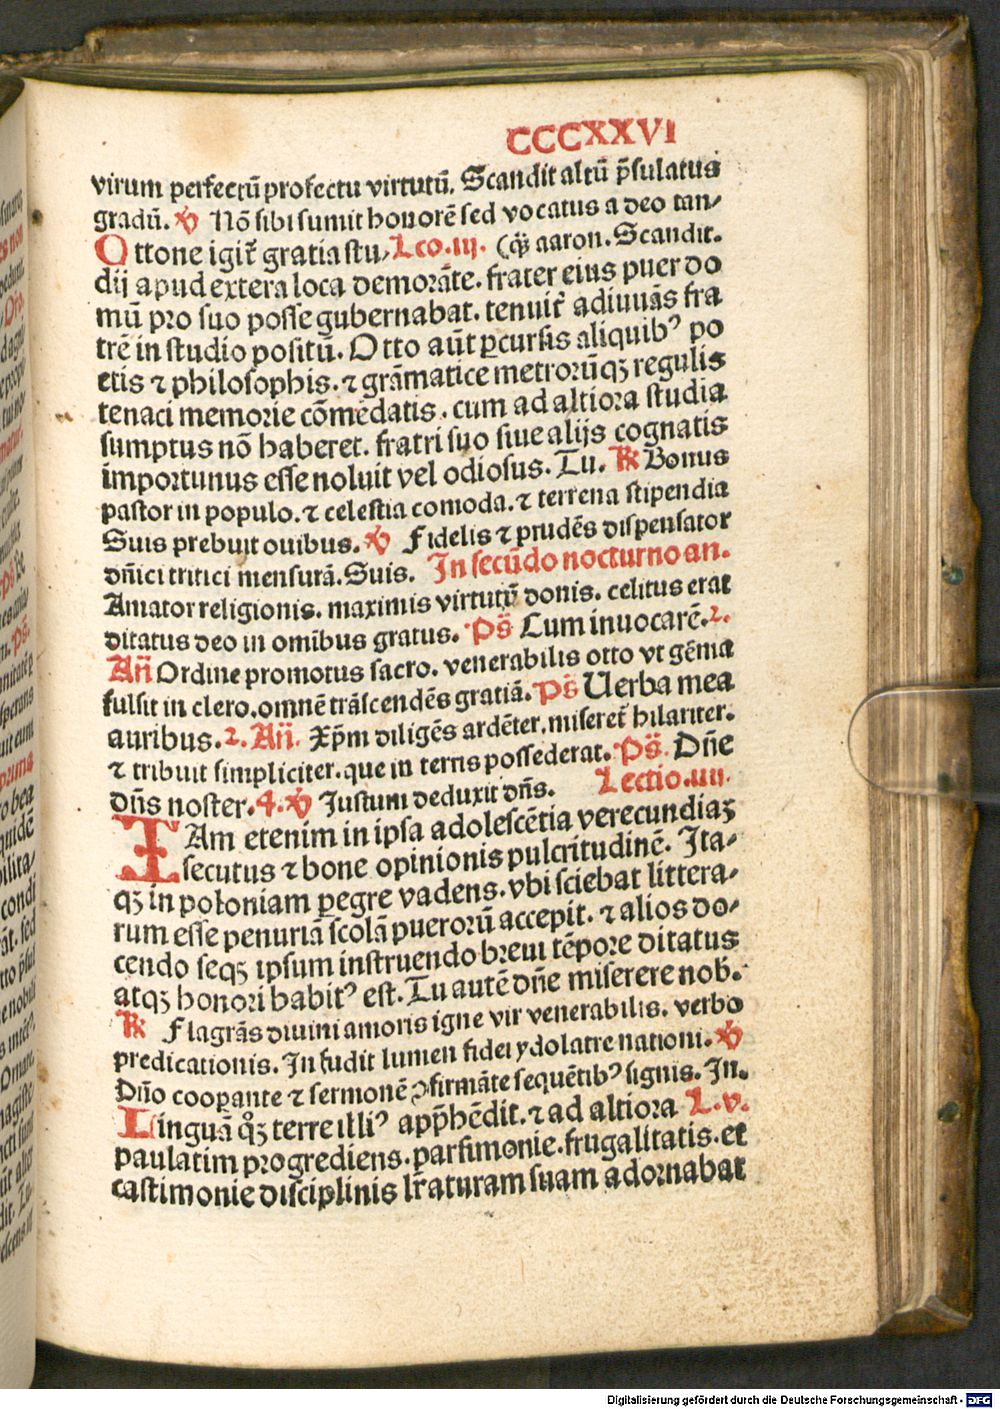 CCCXXVI
virum perfectū profectu virtutū. Scandit altū p̄sulatus
gradū. ℣ Nō sibi sumit honorē sed vocatus a deo tan-
Ottone igit̄ gratia stu- Leo. iij. (qȝ aaron. Scandit.
dij apud extera loca demorāte. frater eius puer do
mū pro suo posse gubernabat. tenuit̄ adiuuās fra
trē in studio positū. Otto aūt ꝑcursis aliquibꝰ po
etis ⁊ philosophis. ⁊ grāmatice metrorūqȝ regulis
tenaci memorie cōmēdatis. cum ad altiora studia
sumptus nō haberet. fratri suo siue alijs cognatis
importunus esse noluit vel odiosus. Tu. ℟ Bonus
pastor in populo. ⁊ celestia comoda. ⁊ terrena stipendia
Suis prebuit ouibus. ℣ Fidelis ⁊ prudēs dispensator
dn̄ici tritici mensurā. Suis. In secūdo nocturno an.
Amator religionis. maximis virtutū donis. celitus erat
ditatus deo in omībus gratus. Ps̄ Cum inuocarē. 2.
An̄ Ordine promotus sacro. venerabilis otto vt gēma
fulsit in clero. omnē trāscendēs gratiā. Ps̄ Uerba mea
auribus. 2. An̄. Xp̄m diligēs ardēter. miseret̄ hilariter.
⁊ tribuit simpliciter. que in terris possederat. Ps̄. Dn̄e
dn̄s noster. 4. ℣ Justum deduxit dn̄s. Lectio. iiii.
IAm etenim in ipsa adolescētia verecundiaȝ
secutus ⁊ bone opinionis pulcritudinē. Ita-
qȝ in poloniam ꝑegre vadens. vbi sciebat littera-
rum esse penuriā scolā puerorū accepit. ⁊ alios do-
cendo seqȝ ipsum instruendo breui tēpore ditatus
atqȝ honori habitꝰ est. Tu autē dn̄e miserere nob̄.
℟ Flagrās diuini amoris igne vir venerabilis. verbo
predicationis. Infudit lumen fidei ydolatre nationi. ℣
Dn̄o cooꝑante ⁊ sermonē ꝯfirmāte sequētibꝰ signis. In.
Linguā qȝ terre illiꝰ app̄hēdit. ⁊ ad altiora L. v.
paulatim progrediens. parsimonie. frugalitatis. et
castimonie disciplinis lr̄aturam suam adornabat
Digitalisierung gefördert durch die Deutsche Forschungsgemeinschaft - DFG